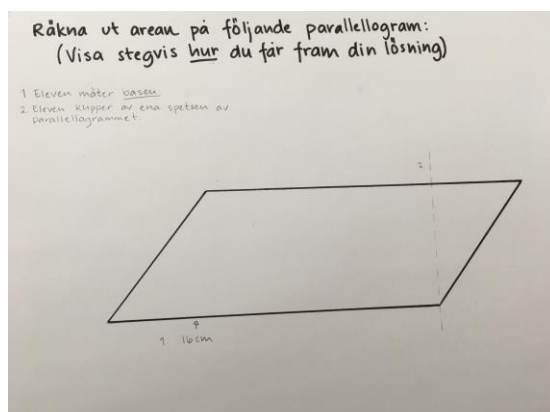 Räkna ut arean på följande parallellogram:
(Visa stegvis hur du får fram din lösning)
1 Eleven mäter basen.
2 Eleven klipper av ena spetsen av
parallellogrammet.
2.
1. 16cm